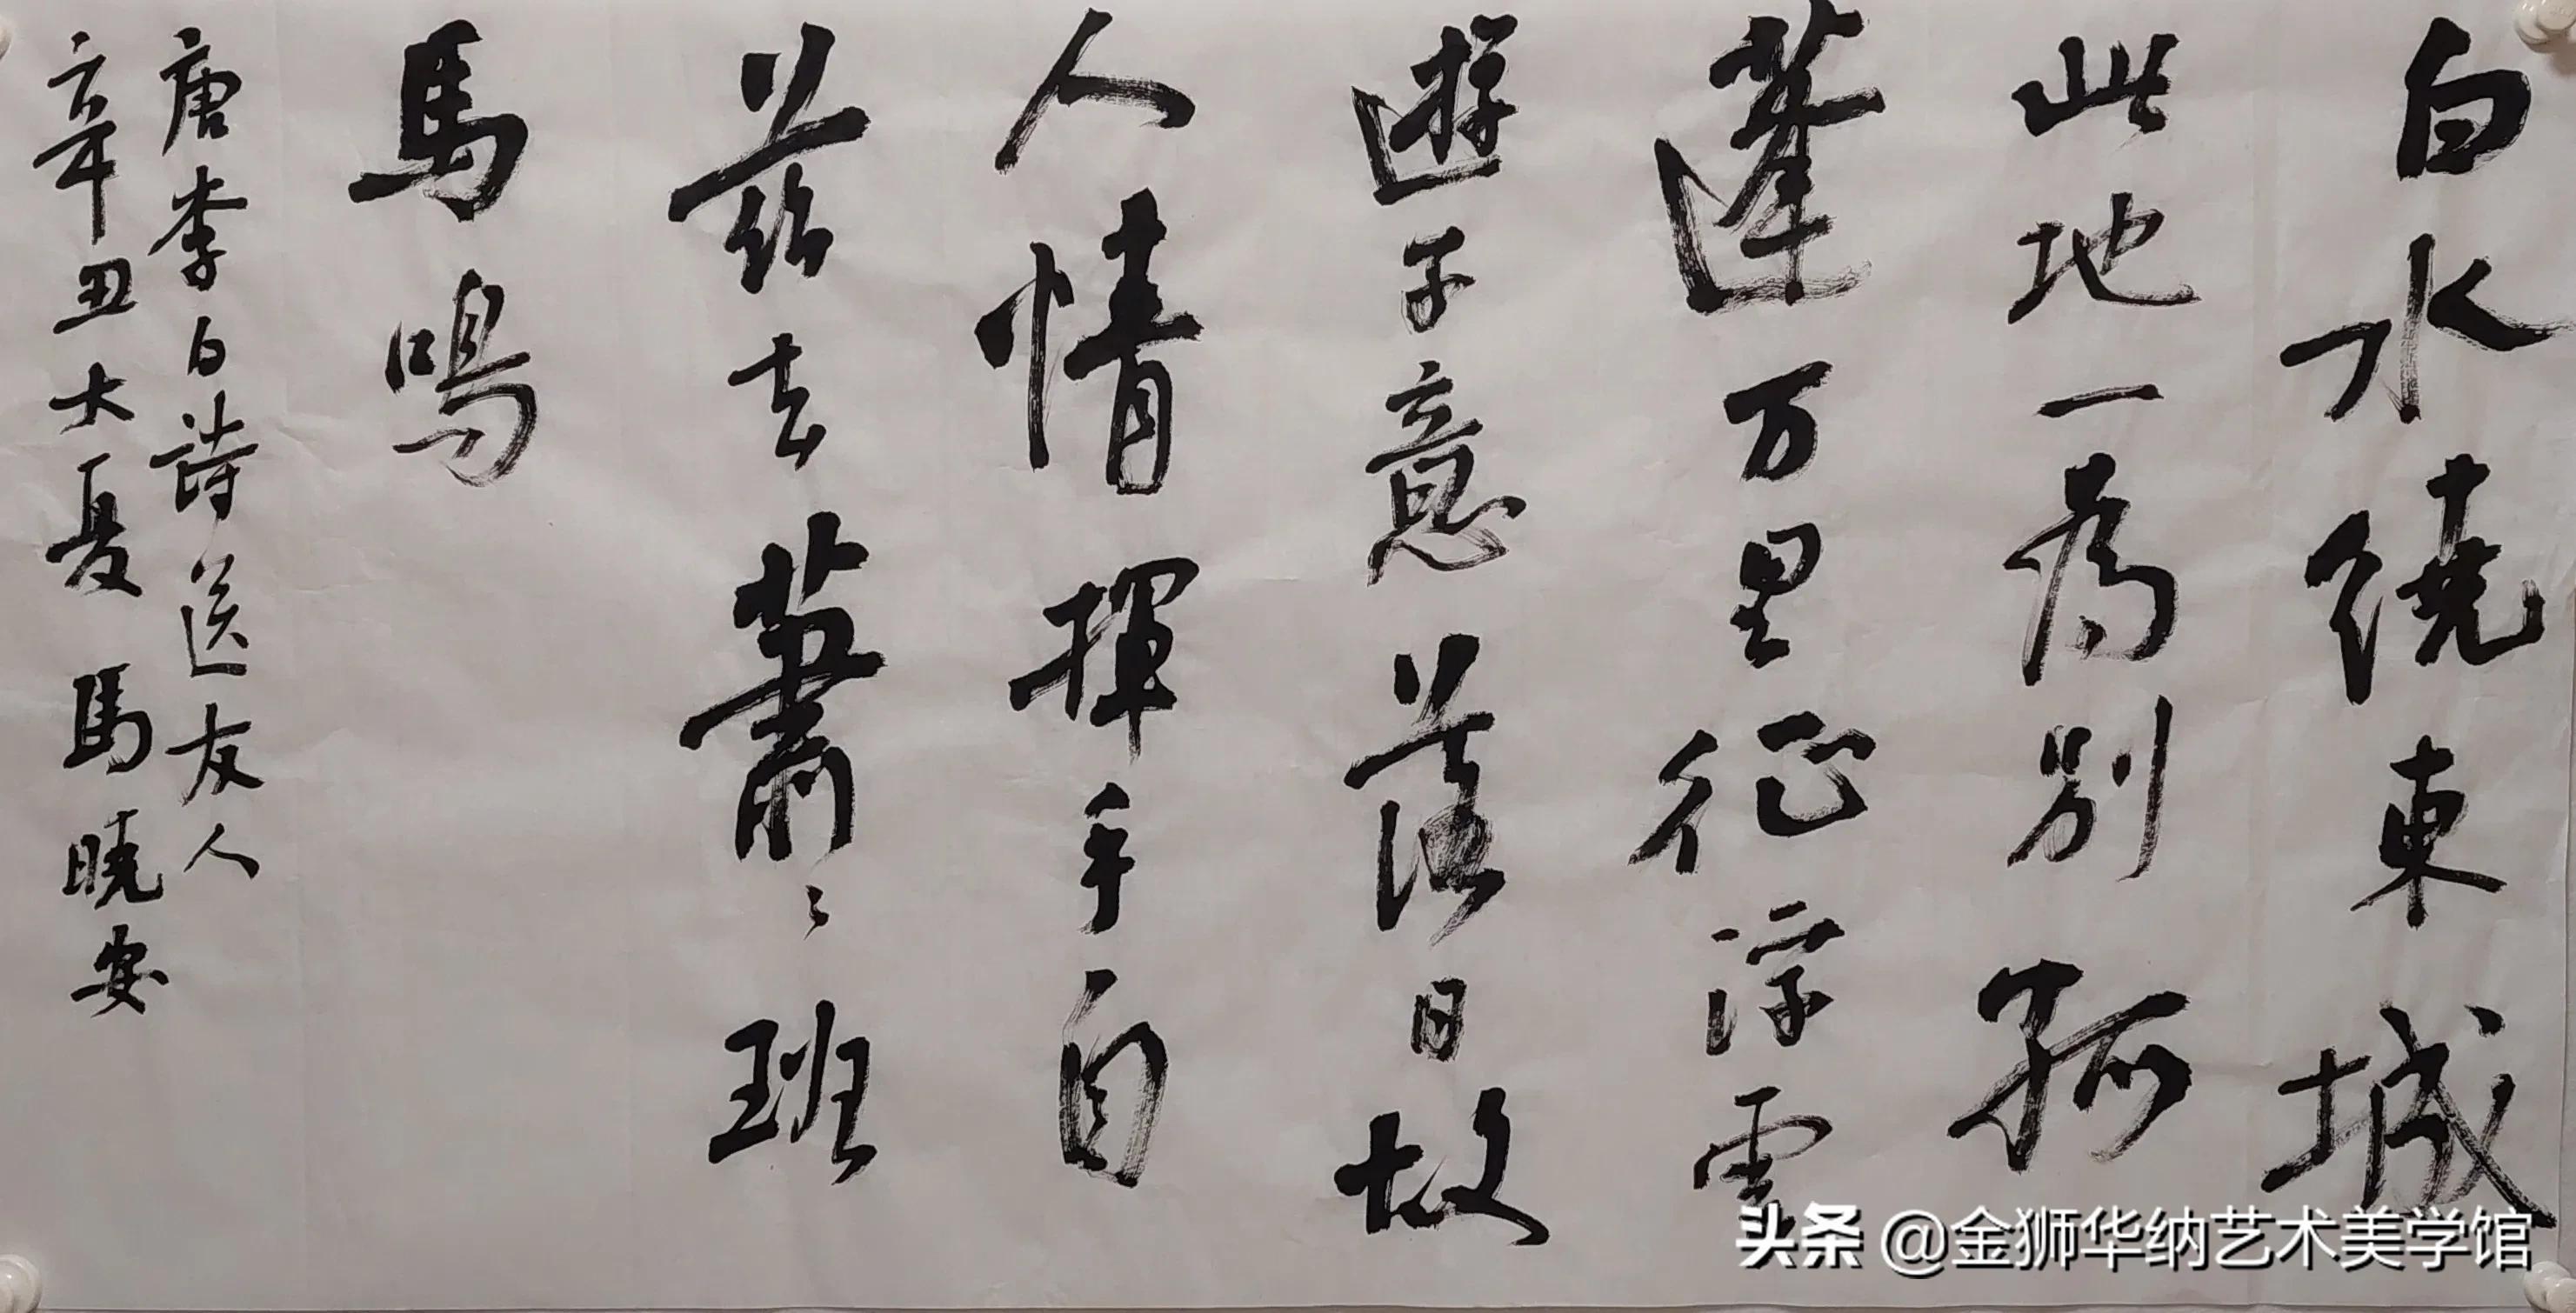 白水繞東城
此地一為別孤
蓬万里征浮雲
遊子意落日故
人情揮手自
茲去蕭〻班
馬鳴
唐李白詩送友人
辛丑大夏 馬曉安
头条 @金狮华纳艺术美学馆